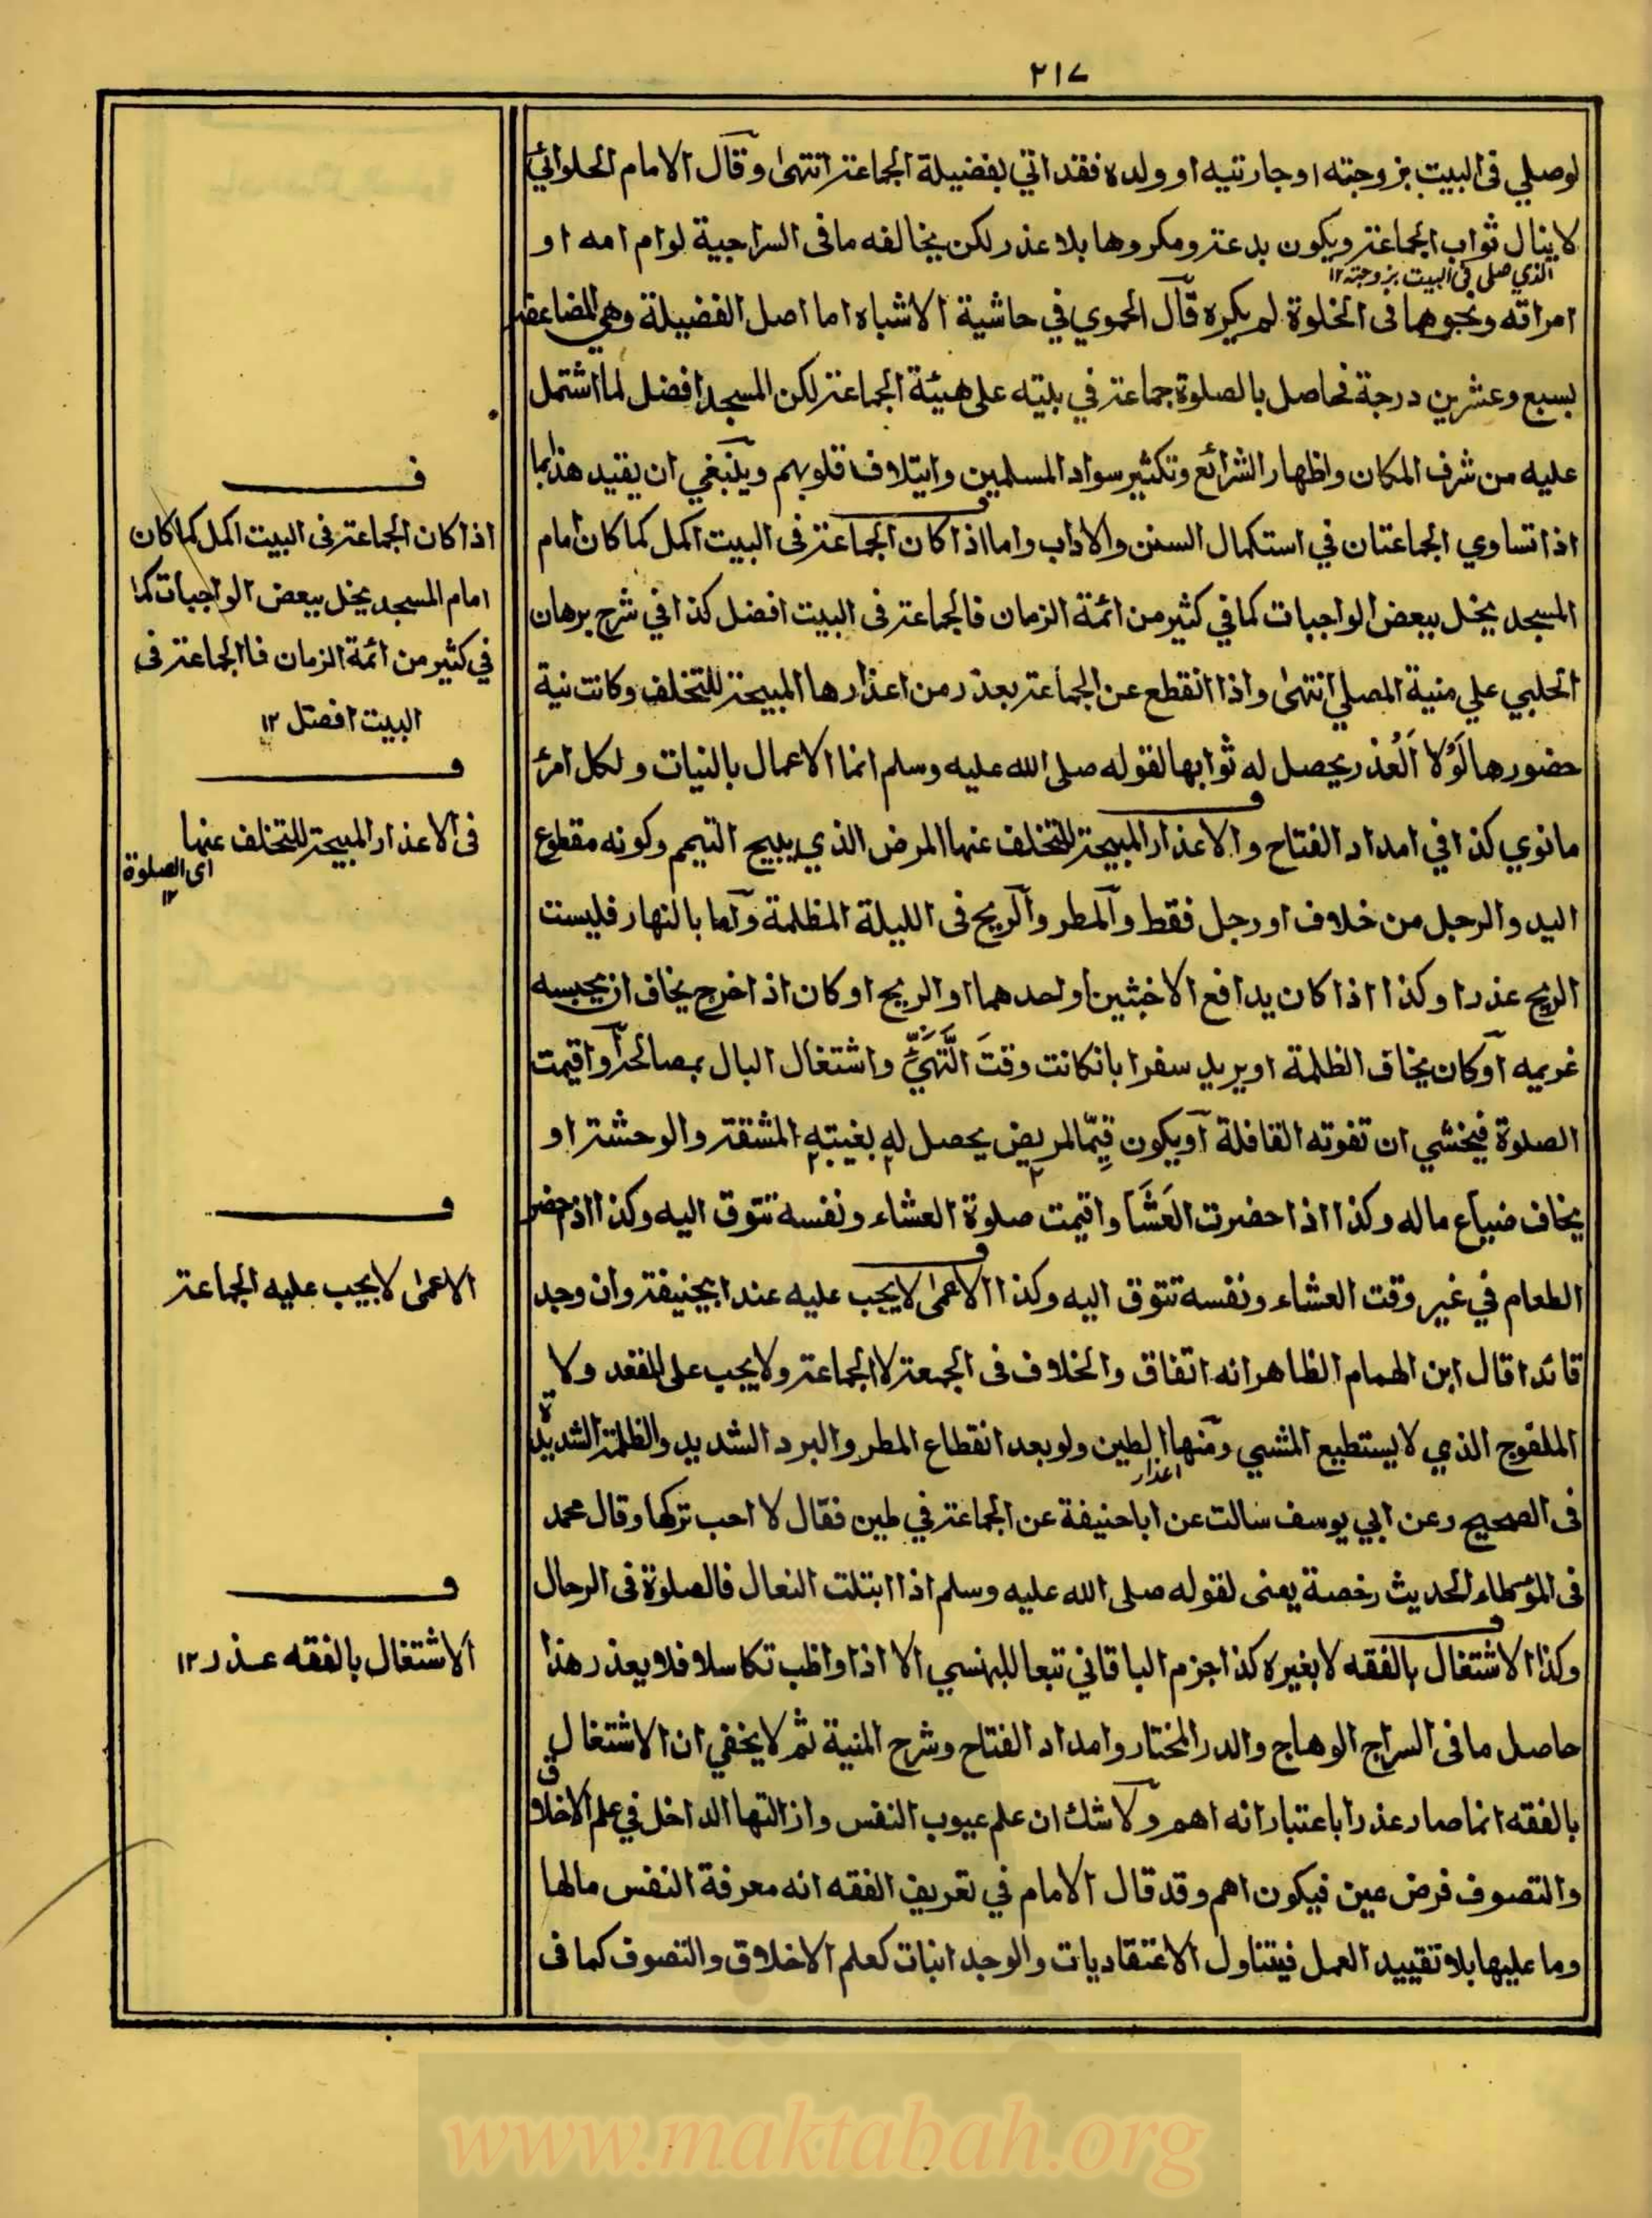 ٢١٧
لوصلي فى البيت بزوجته اوجاريته او ولده فقد اتي بفضيلة الجماعة انتهى وقال الامام الحلوائي
لاينال ثواب الجماعة ويكون بدعة ومكروها بلا عذر لكن يخالفه مافى السراجية لوام امه او
الذي صلى فى البيت بزوجته ١٢
امراته ونحوهما فى الخلوة لم يكره قال الحموي في حاشية الاشباه اما اصل الفضيلة وهي المضاعفة
بسبع وعشرين درجة فحاصل بالصلوة جماعة في بيته على هيئة الجماعة لكن المسجد افضل لما اشتمل
عليه من شرف المكان واظهار الشرائع وتكثير سواد المسلمين وايتلاف قلوبهم وينبغي ان يقيد هذا بما
اذا تساوي الجماعتان في استكمال السنن والاداب واما اذا كان الجماعة فى البيت اكمل كما كان امام
المسجد يخل ببعض الواجبات كما في كثير من ائمة الزمان فالجماعة فى البيت افضل كذا في شرح برهان
الحلبي علي منية المصلي انتهى واذا انقطع عن الجماعة بعذر من اعذارها المبيحة للتخلف وكانت نية
حضورها لَوْلا اَلْعُذر يحصل له ثوابها لقوله صلى الله عليه وسلم انما الاعمال بالنيات ولكل امرئ
مانوي كذا في امداد الفتاح والاعذار المبيحة للتخلف عنها المرض الذي يبيح التيمم وكونه مقطوع
اليد والرجل من خلاف او رجل فقط والمطر والريح فى الليلة المظلمة واما بالنهار فليست
الريح عذرا وكذا اذا كان يدافع الاخبثين او احدهما او الريح او كان اذا خرج يخاف ان يحبسه
غريمه او كان يخاف الظلمة او يريد سفرا بانكانت وقتَ الَّتهَيُّ واشتغال البال بمصالحه او اقيمت
الصلوة فيخشي ان تفوته القافلة او يكون قيِّما لمريض يحصل له بغيبته المشقة والوحشة او
يخاف ضياع ماله وكذا اذا حضرت العَشَا واقيمت صلوة العشاء ونفسه تتوق اليه وكذا اذا حضر
الطعام في غير وقت العشاء ونفسه تتوق اليه وكذا الاعمى لايجب عليه عند ابيحنيفة وان وجد
قائدا قال ابن الهمام الظاهر انه اتفاق والخلاف فى الجمعة لا الجماعة ولايجب على المقعد ولا
الملفوج الذي لا يستطيع المشي ومنها الطين ولو بعد انقطاع المطر والبرد الشديد والظلمة الشديدة
اعذار
فى الصحيح وعن ابي يوسف سالت عن اباحنيفة عن الجماعة في طين فقال لا احب تركها وقال محمد
فى المؤطاء الحديث رخصة يعنى لقوله صلى الله عليه وسلم اذا ابتلت النعال فالصلوة فى الرحال
وكذا الاشتغال بالفقه لا بغيره كذا جزم الباقاني تبعا للبهنسي الا اذا واظب تكاسلا فلا يعذر هذا
حاصل مافى السراج الوهاج والدر المختار وامداد الفتاح وشرح المنية ثم لايخفي ان الاشتغال
بالفقه انما صار عذرا باعتبار انه اهم ولا شك ان علم عيوب النفس وازالتها الداخل في علم الاخلاق
والتصوف فرض عين فيكون اهم وقد قال الامام في تعريف الفقه انه معرفة النفس مالها
وما عليها بلا تقييد العمل فيتناول الاعتقاديات والوجدانيات كعلم الاخلاق والتصوف كما فى
ف
اذا كان الجماعة فى البيت اكمل كما كان
امام المسجد يخل ببعض الواجبات كما
في كثير من ائمة الزمان فاالجماعة فى
البيت افضل ١٢
ف
فى الاعذار المبيحة للتخلف عنها
اى الصلوة
١٢
ف
الاعمى لايجب عليه الجماعة
ف
الاشتغال بالفقه عذر ١٢
www.maktabah.org